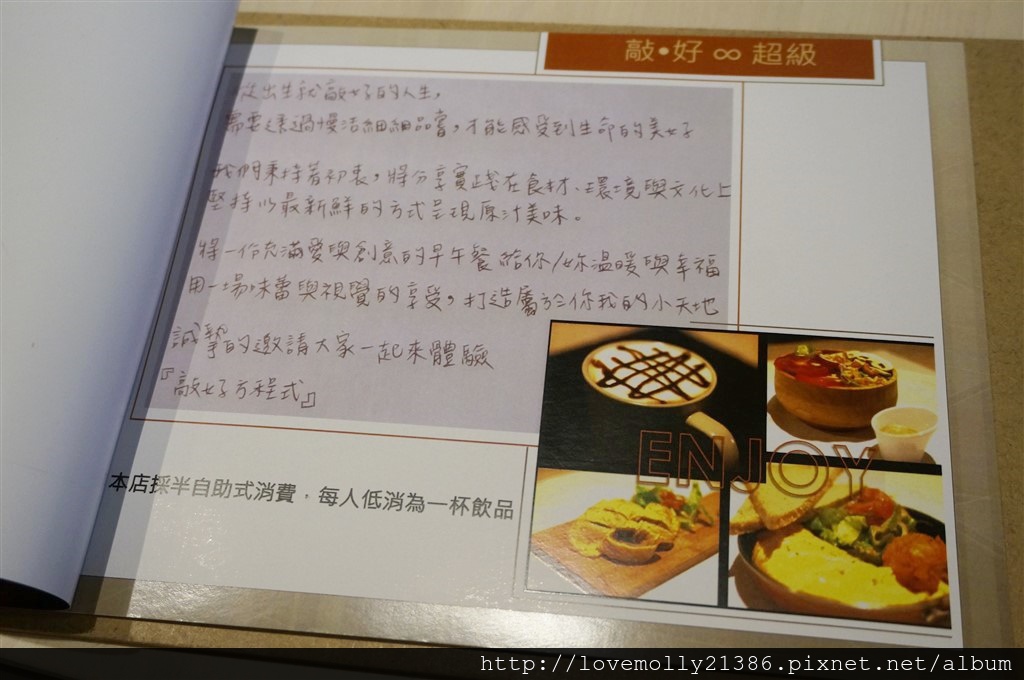 敲•好∞超級
從出生就敲好的人生，
需要透過慢活細細品嘗，才能感受到生命的美好
我們秉持著初衷，將分享實踐在食材、環境與文化上
堅持以最新鮮的方式呈現原汁美味。
將一份充滿愛與創意的早午餐給你/妳溫暖與幸福
用一場味蕾與視覺的享受，打造屬於你我的小天地
誠摯的邀請大家一起來體驗
『敲好方程式』
本店採半自助式消費，每人低消為一杯飲品
ENJOY
http://lovemolly21386.pixnet.net/album